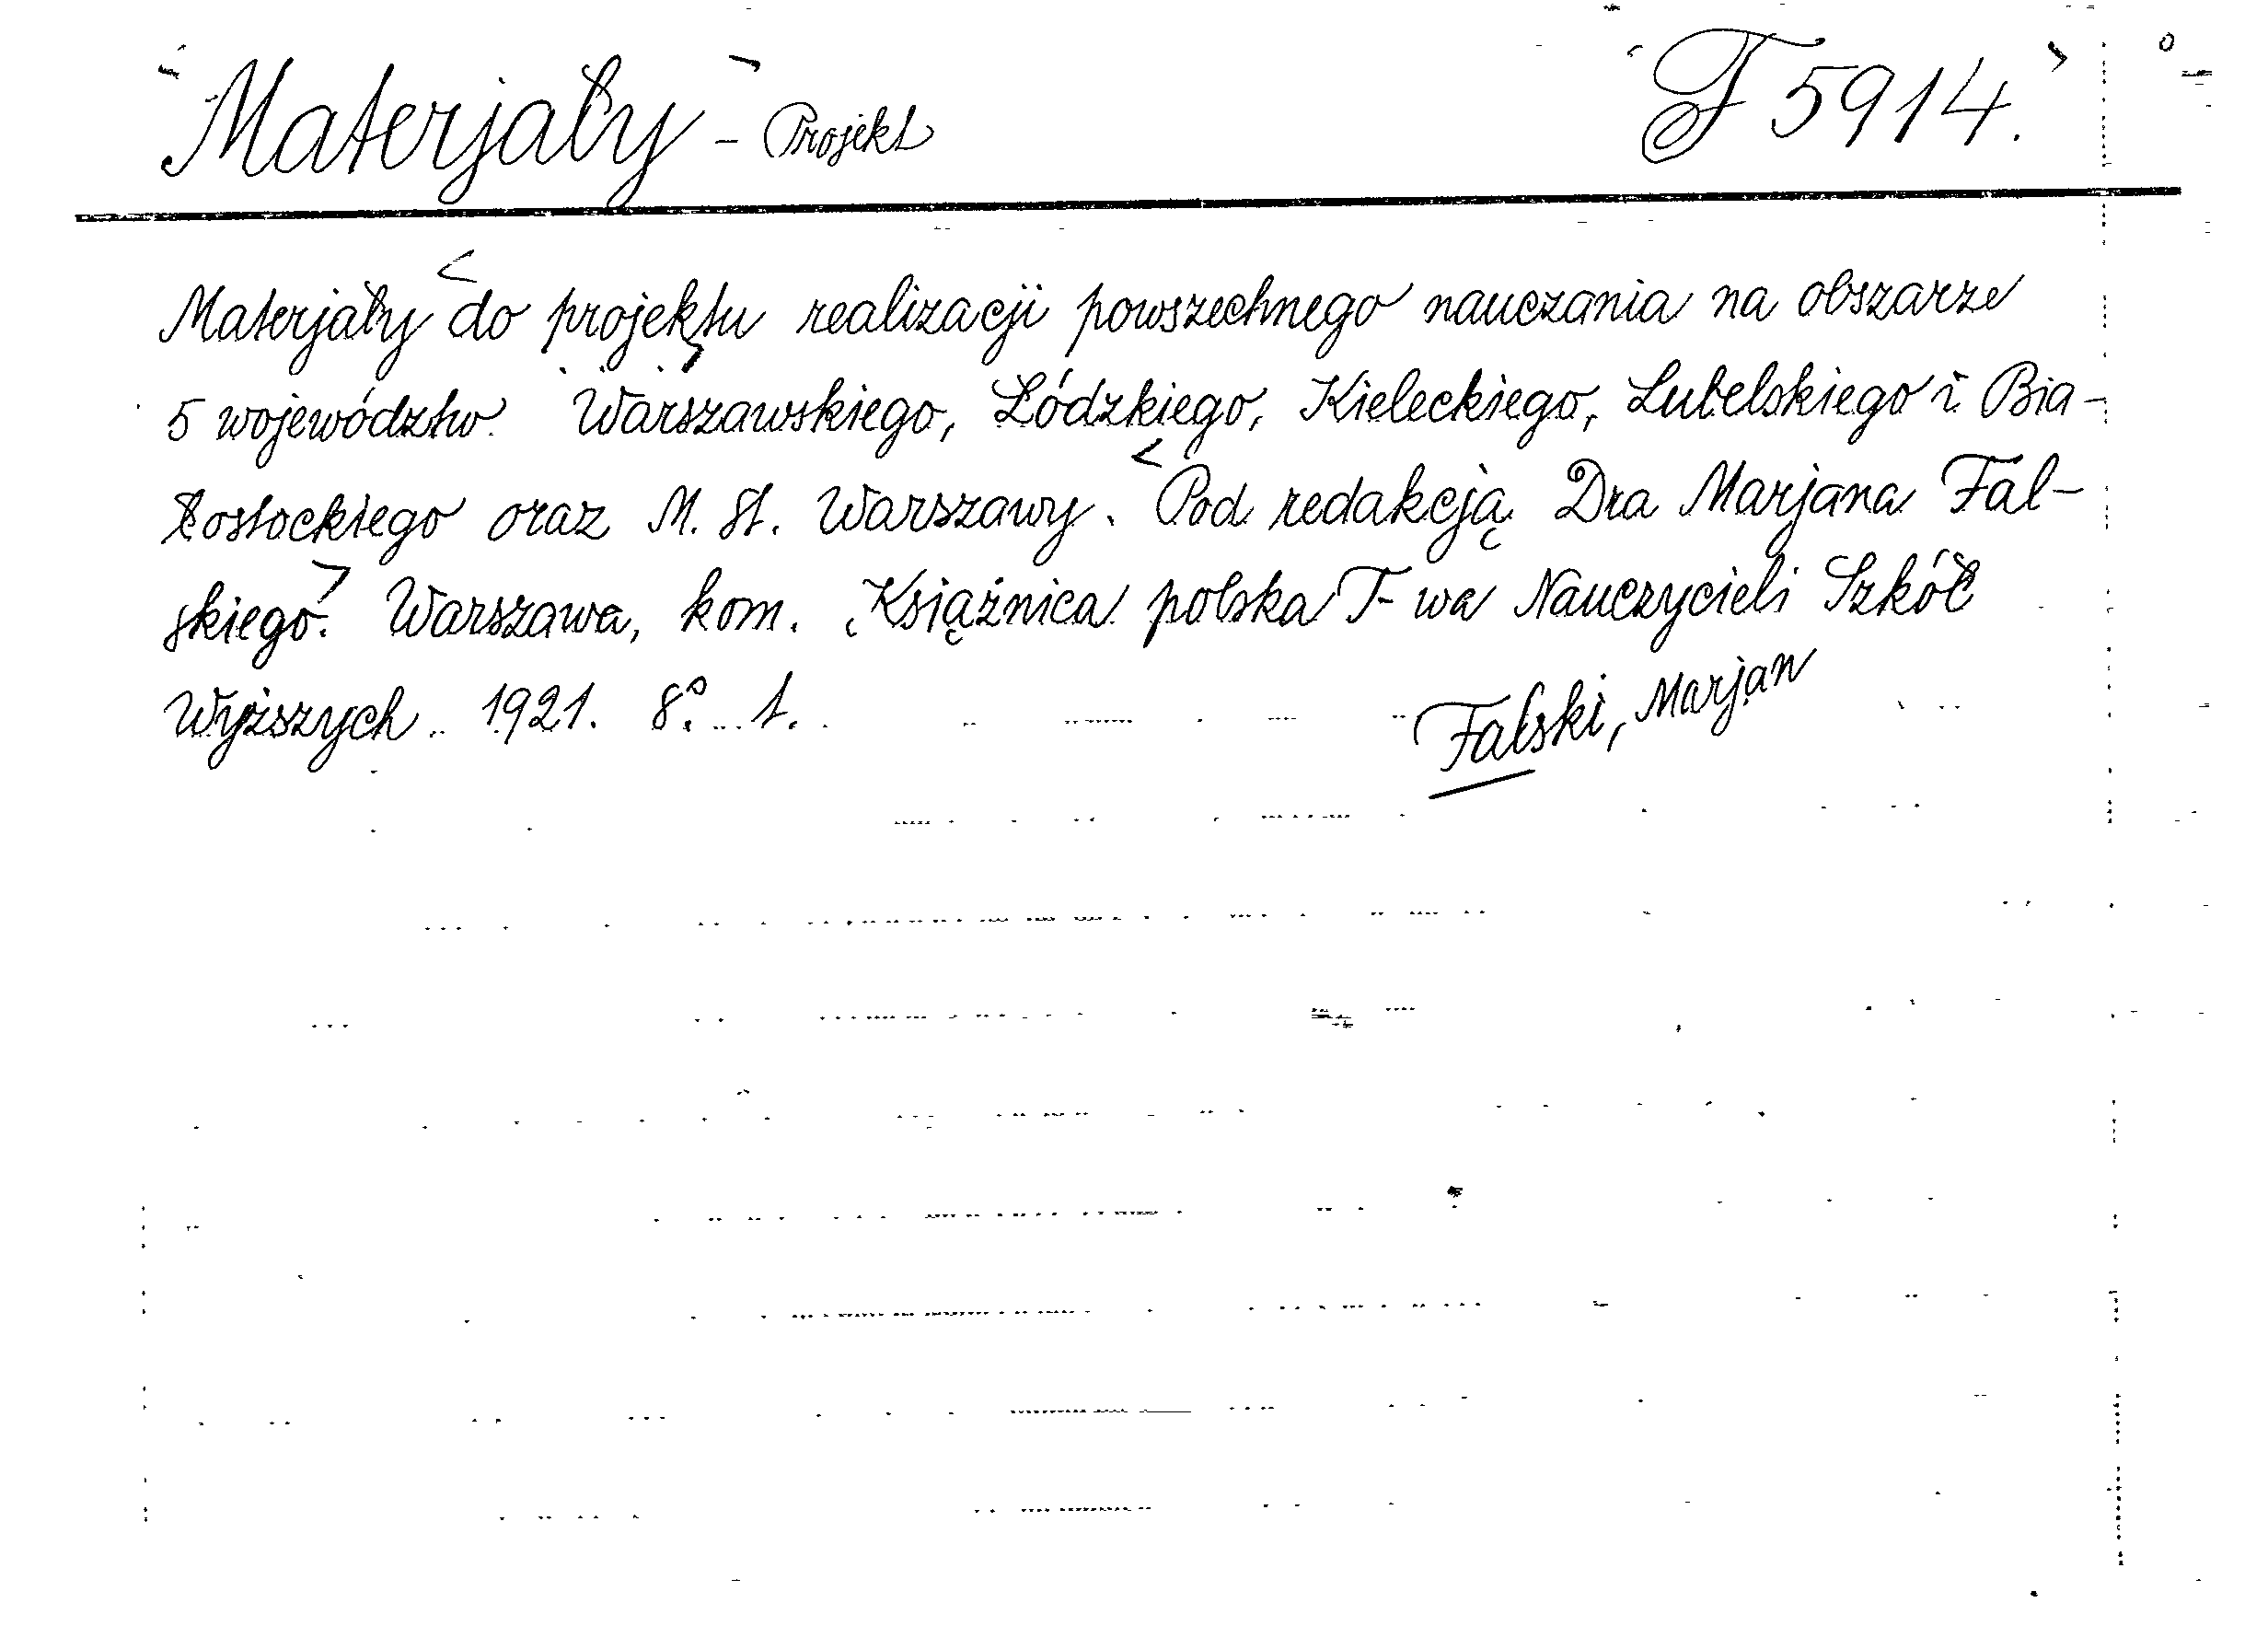 Materjały - Projekt F 5914.
Materjały do projektu realizacji powszechnego nauczania na obszarze
5 województw. Warszawskiego, Łódzkiego, Kieleckiego, Lubelskiego i Bia-
łostockiego oraz M. St. Warszawy. Pod redakcją Dra Marjana Fal-
skiego. Warszawa, kom. Książnica polska T-wa Nauczycieli Szkół
Wyższych 1921. 8º. 1.
Falski, Marjan